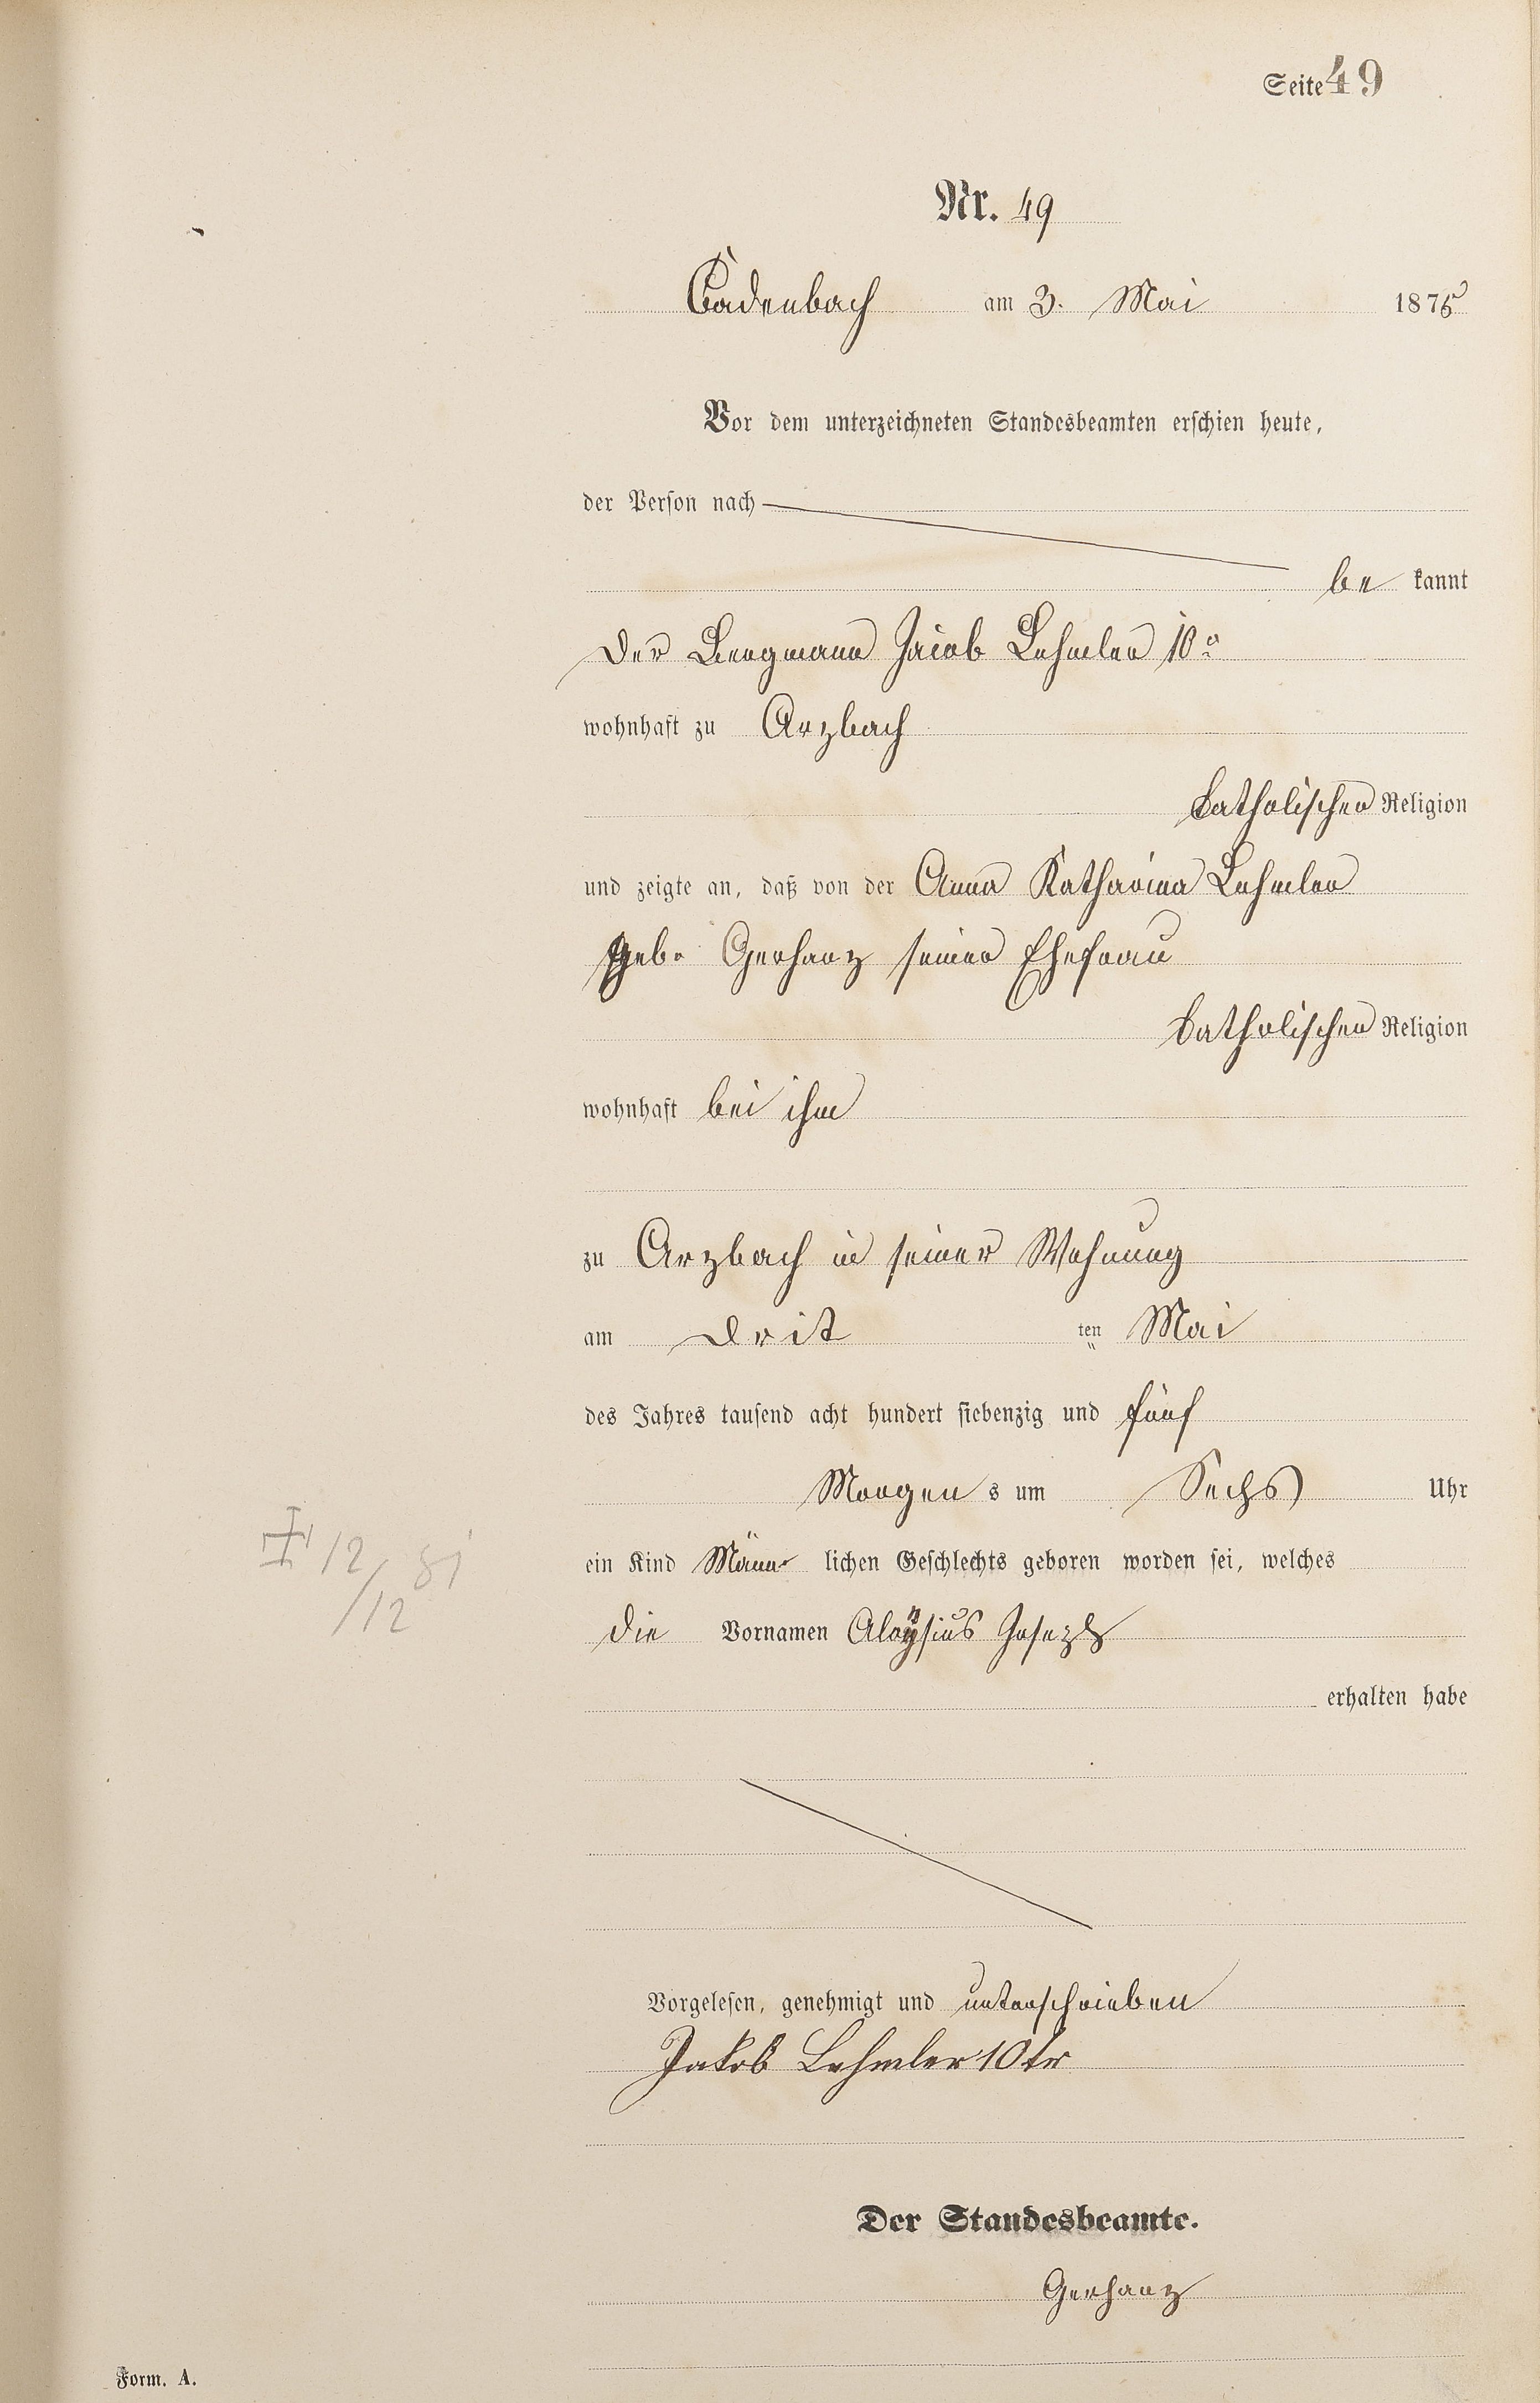 Seite 49
Nr. 49
Cadenbach am 3. Mai 1875
Vor dem unterzeichneten Standesbeamten erschien heute,
der Person nach
be kannt
Der Bergmann Jacob Lehmler 10r
wohnhaft zu Arzbach
katholischer Religion
und zeigte an, daß von der Anna Katharina Lehmler
geb. Gerharz seiner Ehefrau
katholischer Religion
wohnhaft bei ihm
zu Arzbach in seiner Wohnung
am Drit ten Mai
des Jahres tausend acht hundert siebenzig und fünf
Morgen s um Sechs Uhr
ein Kind Männ- lichen Geschlechts geboren worden sei, welches
die Vornamen Aloysius Joseph
erhalten habe
12/12
Vorgelesen, genehmigt und unterschrieben
Jakob Lehmler 10tr
Der Standesbeamte.
Gerharz
Form. A.